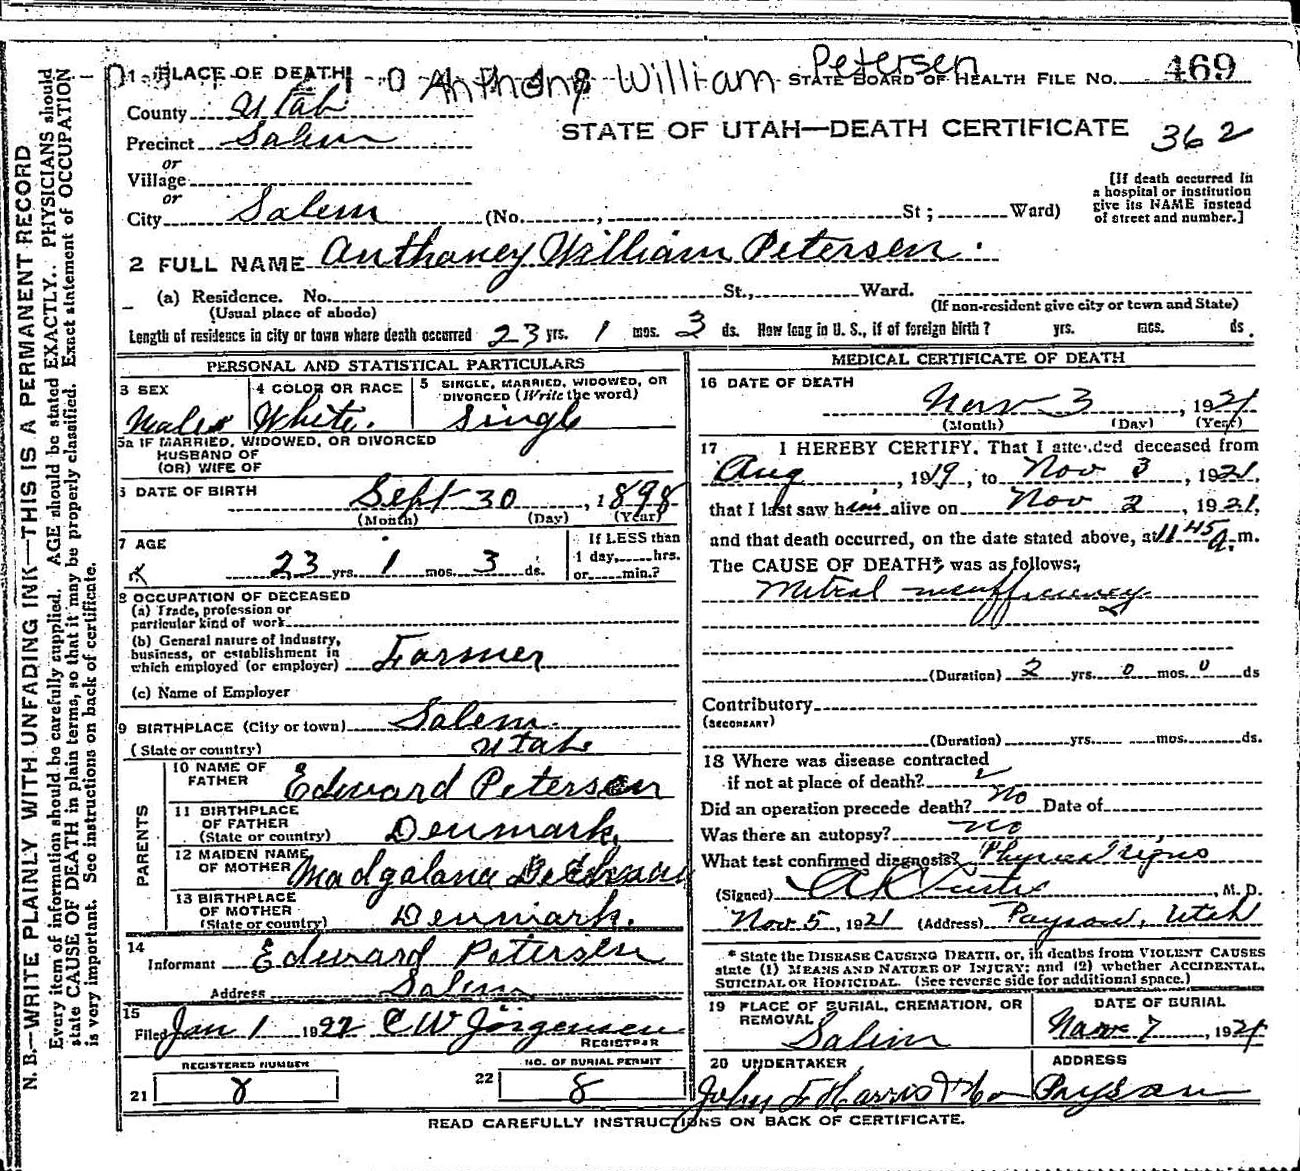 1 PLACE OF DEATH Anthony William Petersen STATE BOARD OF HEALTH FILE NO. 469
County Utah
STATE OF UTAH—DEATH CERTIFICATE 362
Precinct Salem
or
Village
or
City Salem (No. , St ; Ward)
[If death occurred in
a hospital or institution
give its NAME instead
of street and number.]
2 FULL NAME Anthaney William Petersen
(a) Residence. No. St., Ward.
(Usual place of abode) (If non-resident give city or town and State)
Length of residence in city or town where death occurred 23 yrs. 1 mos. 3 ds. How long in U. S., if of foreign birth? yrs. mos. ds.
PERSONAL AND STATISTICAL PARTICULARS
3 SEX
Male
4 COLOR OR RACE
White.
5 SINGLE, MARRIED, WIDOWED, OR
DIVORCED (Write the word)
Single
5a IF MARRIED, WIDOWED, OR DIVORCED
HUSBAND OF
(OR) WIFE OF
6 DATE OF BIRTH Sept 30 , 1898
(Month) (Day) (Year)
7 AGE
23 yrs. 1 mos. 3 ds.
If LESS than
1 day, hrs.
or min.?
8 OCCUPATION OF DECEASED
(a) Trade, profession or
particular kind of work
(b) General nature of industry,
business, or establishment in
which employed (or employer) Farmer
(c) Name of Employer
9 BIRTHPLACE (City or town) Salem.
(State or country) Utah
PARENTS
10 NAME OF
FATHER Edward Petersen
11 BIRTHPLACE
OF FATHER
(State or country) Denmark.
12 MAIDEN NAME
OF MOTHER Madgalana
13 BIRTHPLACE
OF MOTHER
(State or country) Denmark.
14
Informant Edward Petersen
Address Salem
15
Filed Jan 1 1922 C W Jorgensen
REGISTRAR
REGISTERED NUMBER
21 8
NO. OF BURIAL PERMIT
22 8
MEDICAL CERTIFICATE OF DEATH
16 DATE OF DEATH
Nov 3 , 1921
(Month) (Day) (Year)
17 I HEREBY CERTIFY, That I attended deceased from
Aug , 1919, to Nov 3 , 1921,
that I last saw him alive on Nov 2 , 1921,
and that death occurred, on the date stated above, at 11 45 a.m.
The CAUSE OF DEATH* was as follows:
Mitral insufficiency
(Duration) 2 yrs. 0 mos. 0 ds
Contributory
(SECONDARY)
(Duration) yrs. mos. ds.
18 Where was disease contracted
if not at place of death?
Did an operation precede death? No Date of
Was there an autopsy? no
What test confirmed diagnosis? Physical signs
(Signed) , M. D.
Nov 5, 1921 (Address) Payson, Utah
* State the DISEASE CAUSING DEATH, or, in deaths from VIOLENT CAUSES
state (1) MEANS AND NATURE OF INJURY; and (2) whether ACCIDENTAL,
SUICIDAL OR HOMICIDAL. (See reverse side for additional space.)
19 PLACE OF BURIAL, CREMATION, OR
REMOVAL Salem
DATE OF BURIAL
Nov 7 , 1921
20 UNDERTAKER
John F Harris & Co
ADDRESS
Payson
READ CAREFULLY INSTRUCTIONS ON BACK OF CERTIFICATE.
N. B.—WRITE PLAINLY, WITH UNFADING INK—THIS IS A PERMANENT RECORD
Every item of information should be carefully supplied. AGE should be stated EXACTLY. PHYSICIANS should
state CAUSE OF DEATH in plain terms, so that it may be properly classified. Exact statement of OCCUPATION
is very important. See instructions on back of certificate.